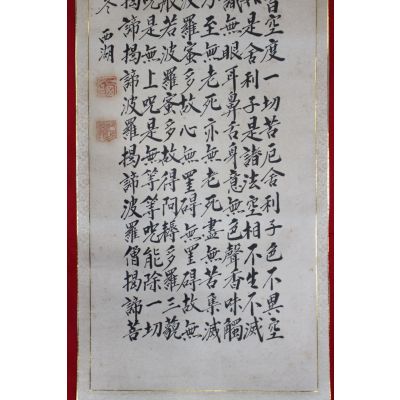 皆空度一切苦厄舍利子色不異空
如是舍利子是諸法空相不生不滅
無眼耳鼻舌身意無色聲香味觸
乃至無老死亦無老死盡無苦集滅
波羅蜜多故心無罣礙無罣礙故無
般若波羅蜜多故得阿耨多羅三藐
是無上呪是無等等呪能除一切
揭諦揭諦波羅揭諦波羅僧揭諦菩
冬 西湖